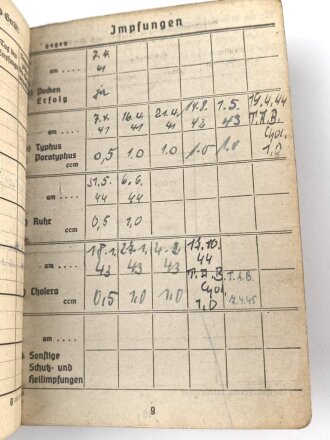 Impfungen
gegen 7.4.
am .... 41
) Pocken
Erfolg
7.4. 16.4. 21.4. 14.8. 1.5. 19.4.44
am .... 41 41 41 42 43 T.A.B.
) Typhus Chol.
Paratyphus 0,5 1,0 1,0 1.0 1.0 1,0
ccm
31.5. 6.6.
am .... 44 44
) Ruhr 0,5 1,0
ccm
18.1. 4.2. 13.10.
am .... 43 43 43 44
T.A.B. T.A.B.
) Cholera Chol.
ccm 0,5 1,0 1,0 1,0 7.4.45
am ....
Sonstige
Schutz- und
Heilimpfungen
9